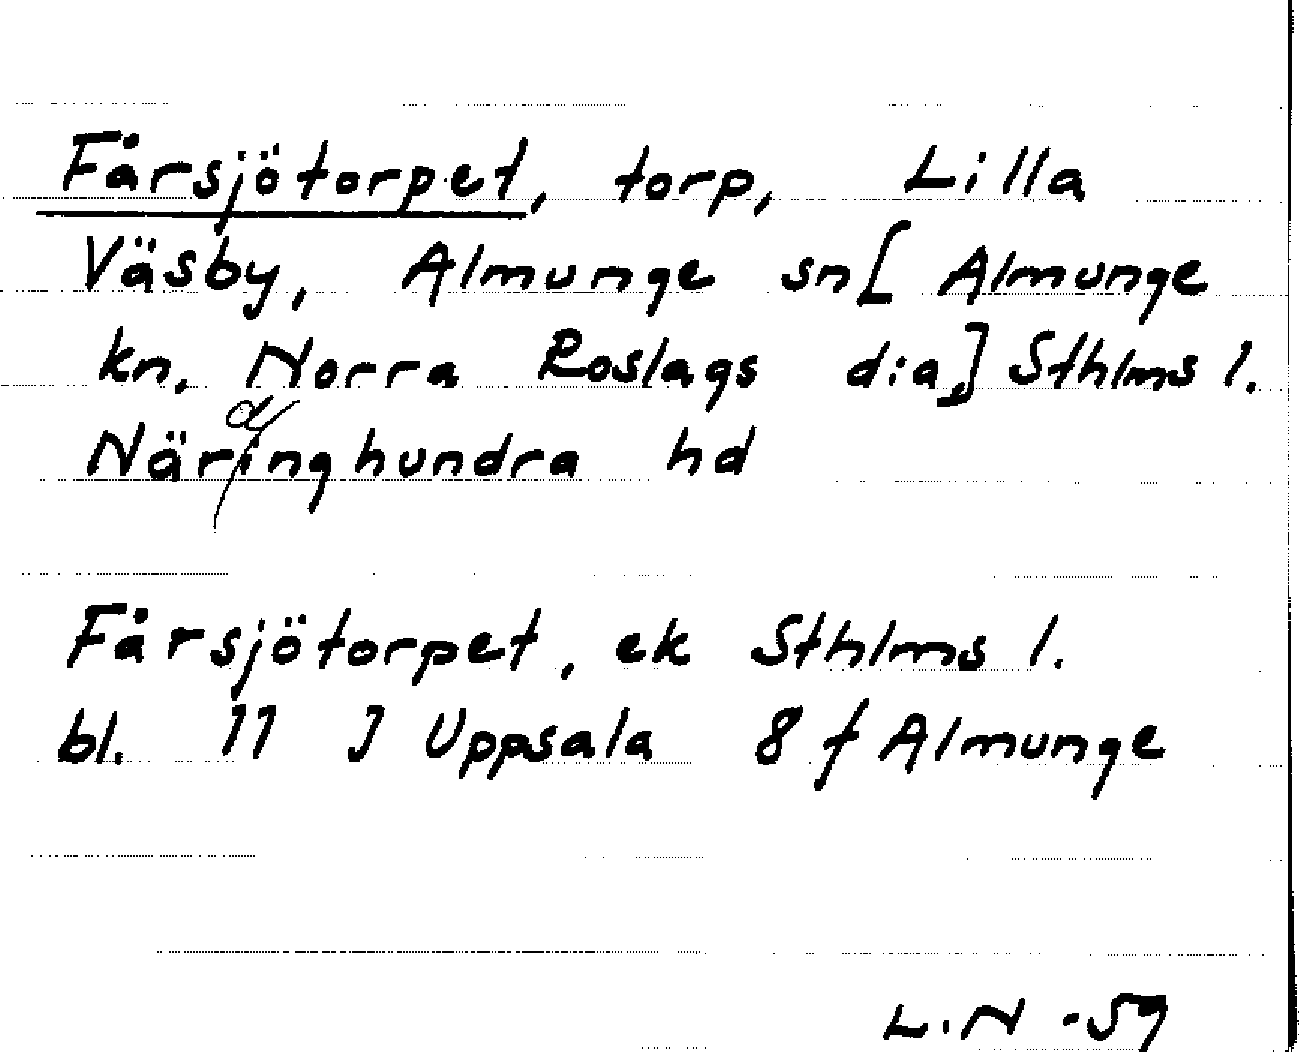 Fårsjötorpet, torp, Lilla
Väsby, Almunge sn [Almunge
kn, Norra Roslags dia,] Sthlms l.
Närdinghundra hd
Fårsjötorpet, ek Sthlms l.
bl. 11 J Uppsala 8 f Almunge
L.N -59